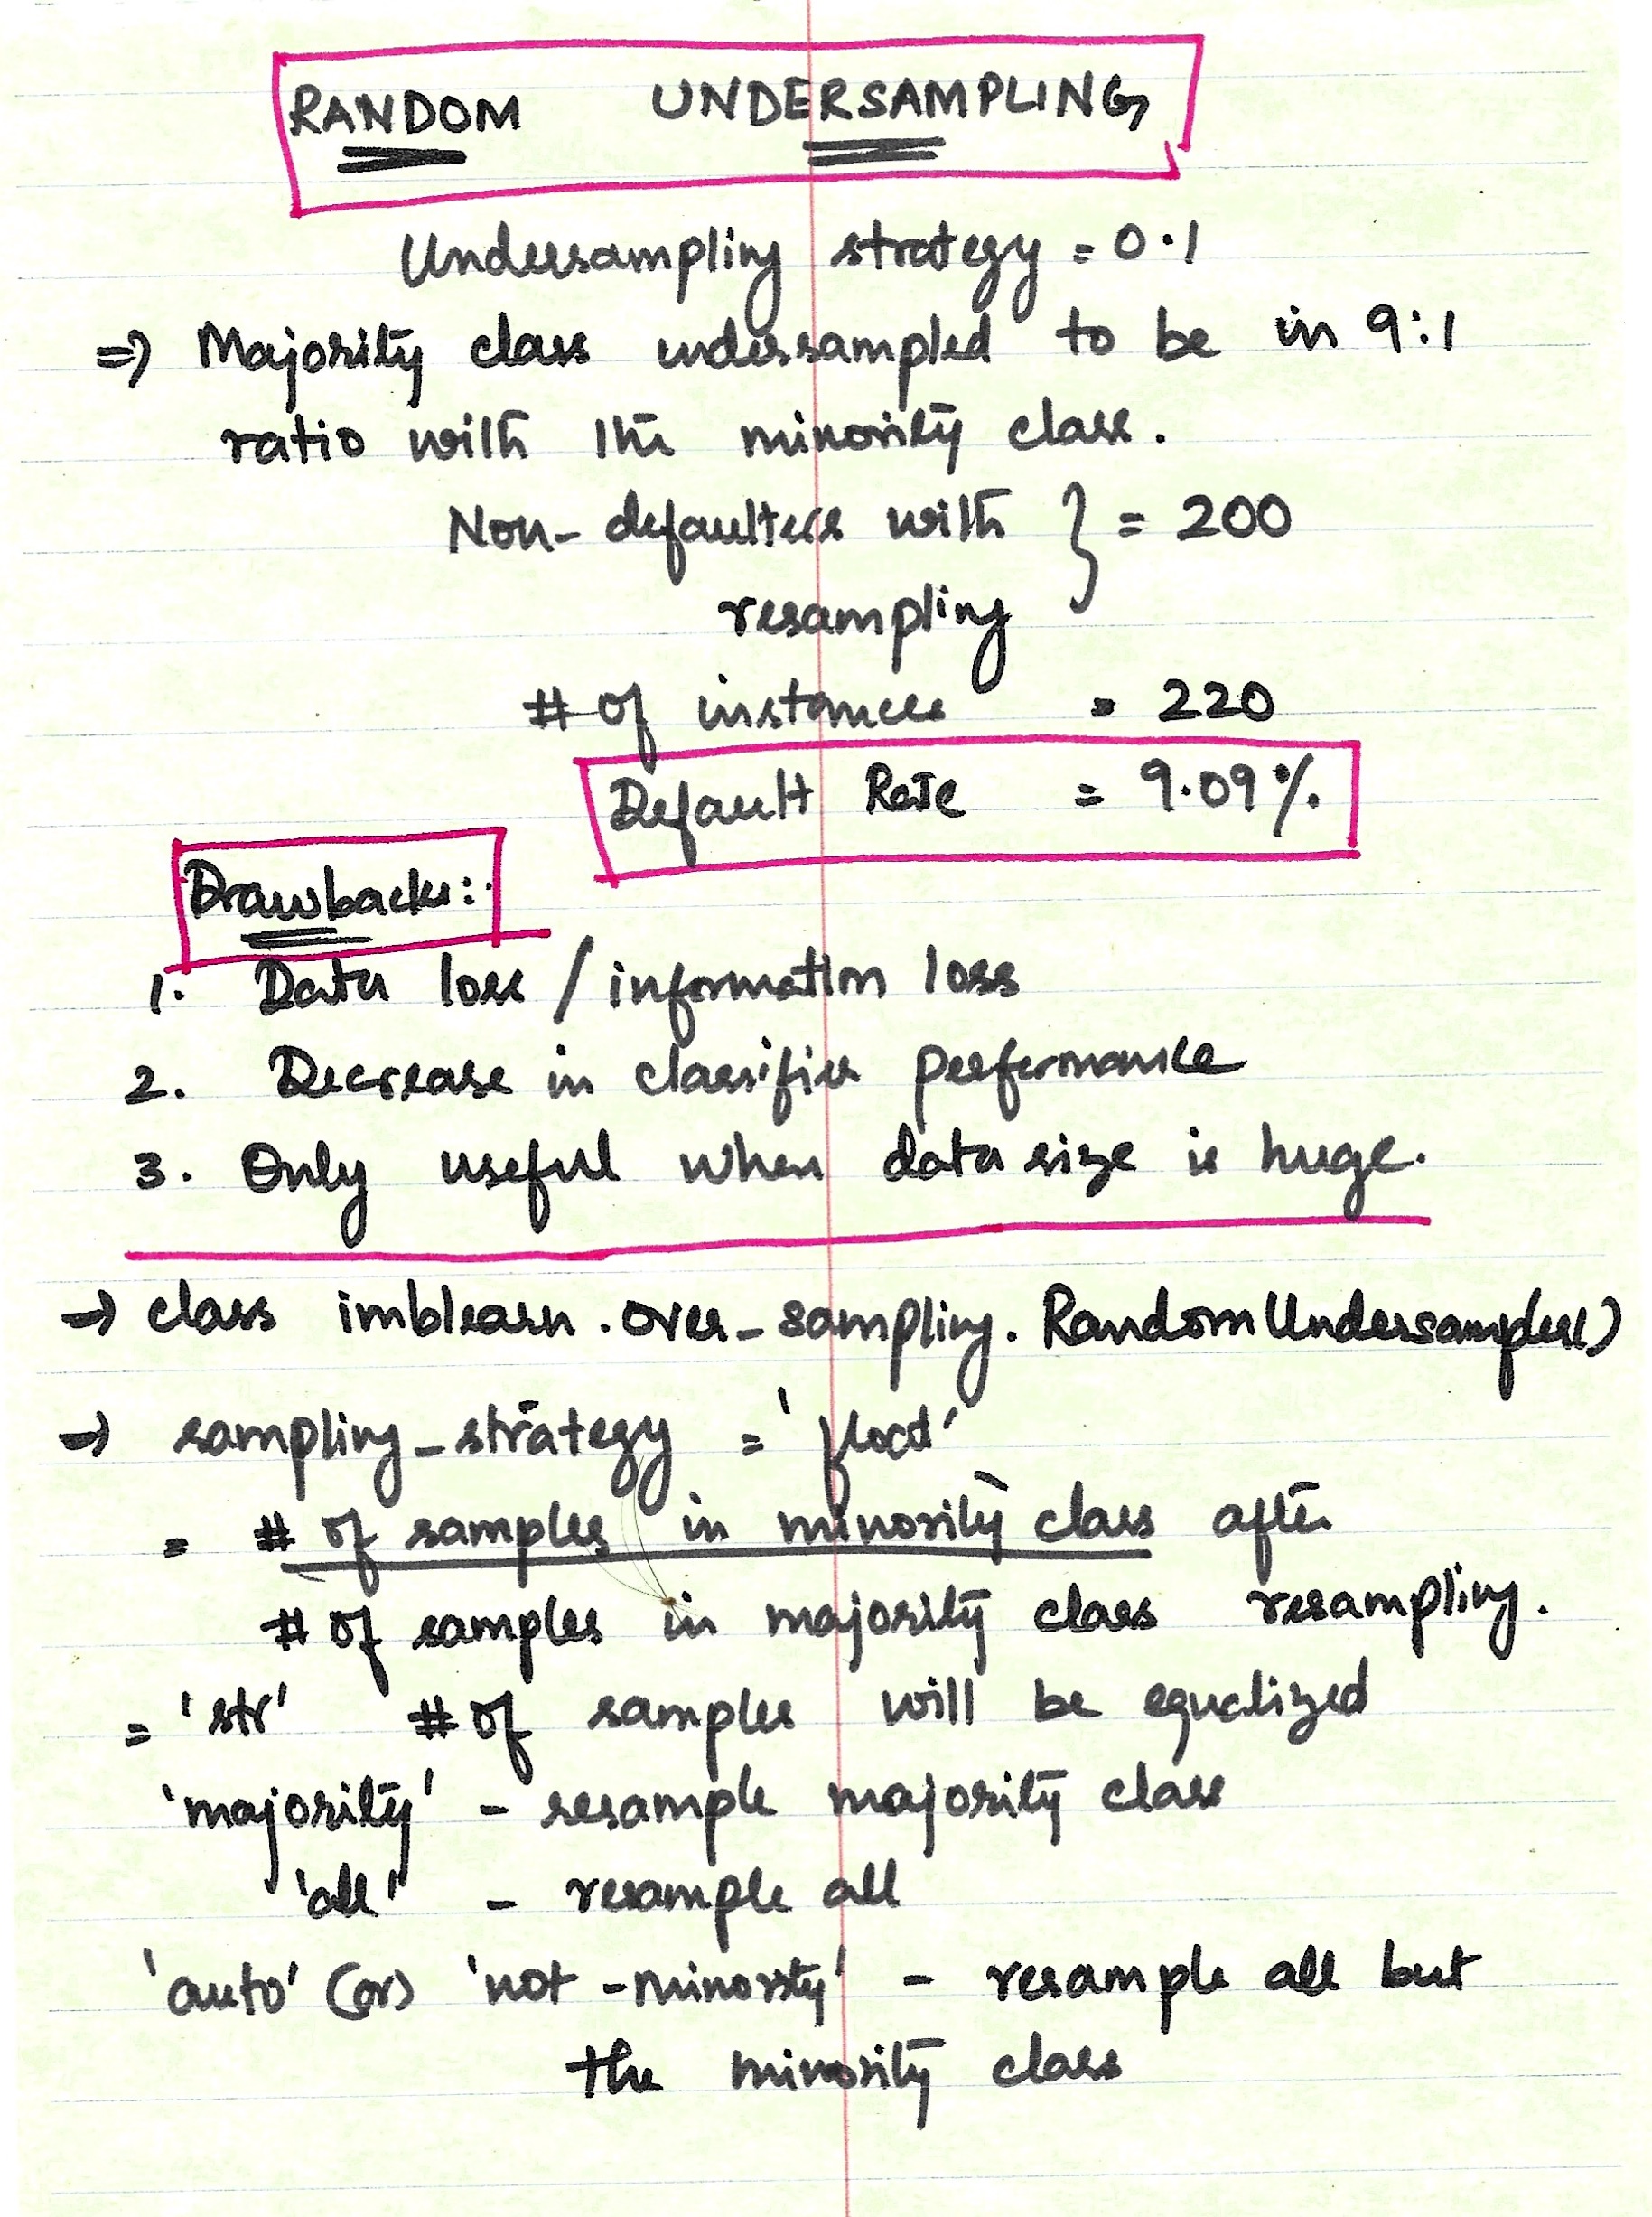 RANDOM UNDERSAMPLING
Undersampling strategy = 0.1
=> Majority class undersampled to be in 9:1
ratio with the minority class.
Non-defaulters with } = 200
resampling
# of instances = 220
Default Rate = 9.09%
Drawbacks:
1. Data loss / information loss
2. Decrease in classifier performance
3. Only useful when data size is huge.
→ class imblearn.over_sampling.RandomUndersampler()
→ sampling_strategy = 'float'
= # of samples in minority class after
# of samples in majority class resampling.
= 'str' # of samples will be equalized
'majority' - resample majority class
'all' - resample all
'auto' (or) 'not-minority' - resample all but
the minority class